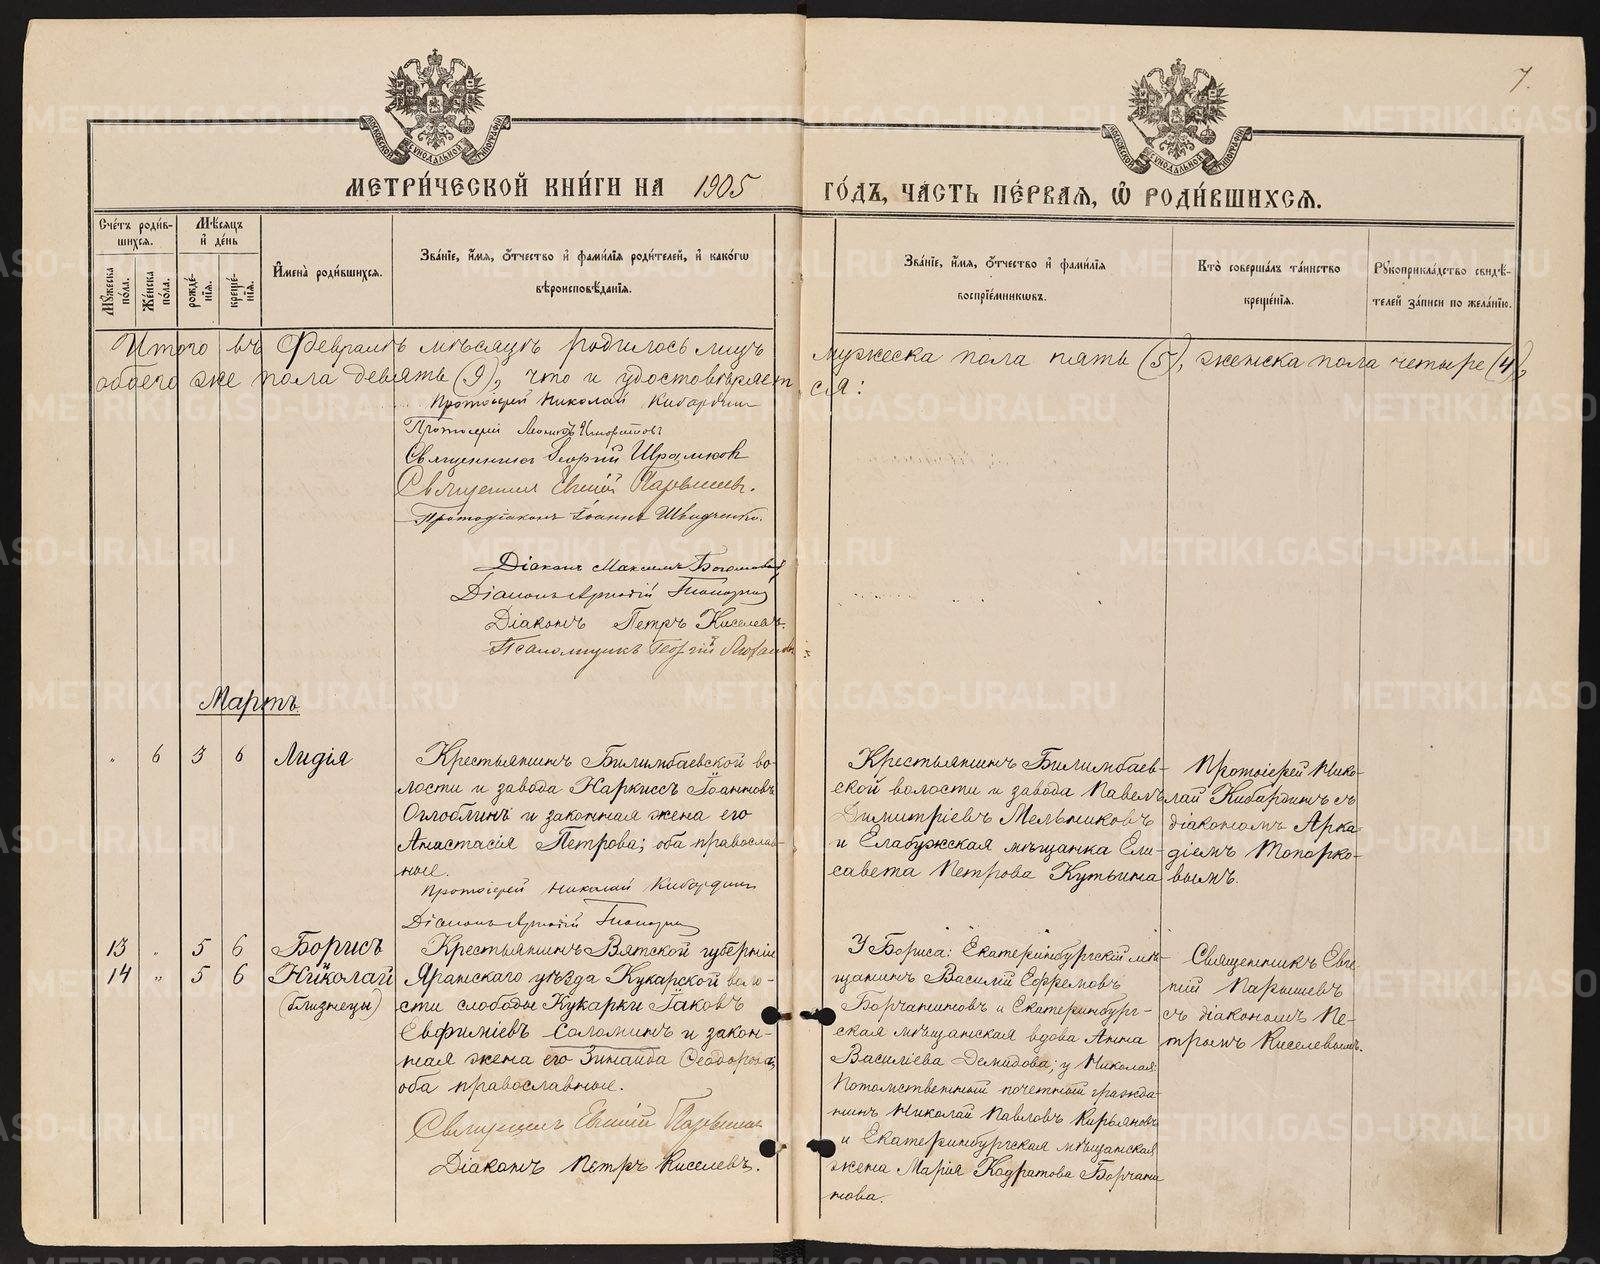 7.
МЕТРИ́ЧЕСКОЙ КНИ́ГИ НА 1905 ГО́ДЪ, ЧА́СТЬ ПЕ́РВАЯ, Ѡ РОДИ́ВШИХСЯ.
Сче́тъ роди́в-
шихся.
Му́жеска по́ла.
Же́нска по́ла.
Мѣ́сяцъ
и де́нь
рожде́-
нїя.
креще́-
нїя.
Имена̀ роди́вшихся.
Зва́нїе, и́мя, о́тчество и фами́лїя роди́телей, и како́гѡ
вѣроисповѣ́данїя.
Зва́нїе, и́мя, о́тчество и фами́лїя
воспрїе́мникѡвъ.
Кто̀ соверша́лъ та́инство
креще́нїя.
Рꙋкоприкла́дство свидѣ́-
телей за́писи по жела́нїю.
Итого въ Февралѣ мѣсяцѣ родилось лицъ мужеска пола пять (5), женска пола четыре (4),
обоего же пола девять (9), что и удостовѣряет
ся:
Протоіерей Николай Кибардинъ
Протоіерей
Священникъ Георгій
Священникъ Евгеній Парышевъ.
Протодіаконъ Іоаннъ
Діаконъ Максимъ
Діаконъ Аркадій Топорковъ
Діаконъ Петръ Киселевъ.
Псаломщикъ Георгій
Мартъ.
" 6 3 6 Лидія
Крестьянинъ Билимбаевской во-
лости и завода Наркиссъ Іоанновъ
Оглоблинъ и законная жена его
Анастасія Петрова; оба православ-
ные.
Протоіерей Николай Кибардинъ
Діаконъ Аркадій Топорковъ
Крестьянинъ Билимбаев-
ской волости и завода Павелъ
Димитріевъ Мельниковъ
и Елабужская мѣщанка Ели-
савета Петрова Кутьина
Протоіерей Нико-
лай Кибардинъ съ
діакономъ Арка-
діемъ Топорко-
вымъ.
13 " 5 6 Борисъ
14 " 5 6 Николай
(близнецы)
Крестьянинъ Вятской губерніи
Яранскаго уѣзда Кукарской воло-
сти слободы Кукарки Іаковъ
Евфиміевъ Соломинъ и закон-
ная жена его Зинаида Ѳеодорова,
оба православные.
Священникъ Евгеній Парышевъ
Діаконъ Петръ Киселевъ.
У Бориса: Екатеринбургскій мѣ-
щанинъ Василій Ефремовъ
Борчаниновъ и Екатеринбург-
ская мѣщанская вдова Анна
Василіева Демидова; у Николая:
Потомственный почетный гражда-
нинъ Николай Павловъ Кирьяновъ
и Екатеринбургская мѣщанская
жена Марія Кодратова Борчани
нова.
Священникъ Евге-
ній Парышевъ
съ діакономъ Пе-
тромъ Киселевымъ.